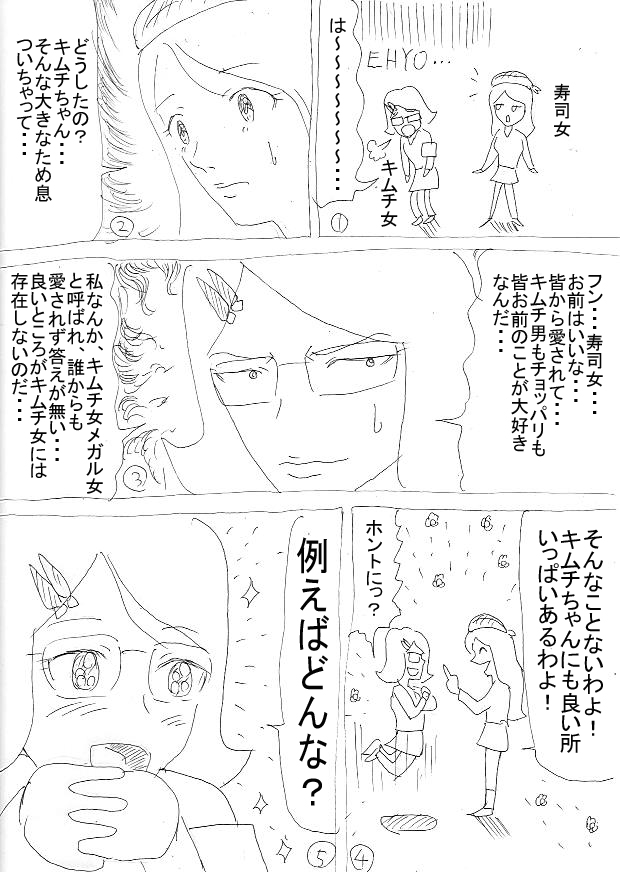 寿司女
キムチ女
EHYO...
は〜〜〜〜〜〜〜・・・
①
どうしたの？
キムチちゃん・・・
そんな大きなため息
ついちゃって・・・
②
フン・・・寿司女・・・
お前はいいな・・・
皆から愛されて・・・
キムチ男もチョッパリも
皆お前のことが大好き
なんだ・・・
私なんか、キムチ女メガル女
と呼ばれ、誰からも
愛されず答えが無い・・・
良いところがキムチ女には
存在しないのだ・・・
③
そんなことないわよ！
キムチちゃんにも良い所
いっぱいあるわよ！
ホントにっ？
④
例えばどんな？
⑤